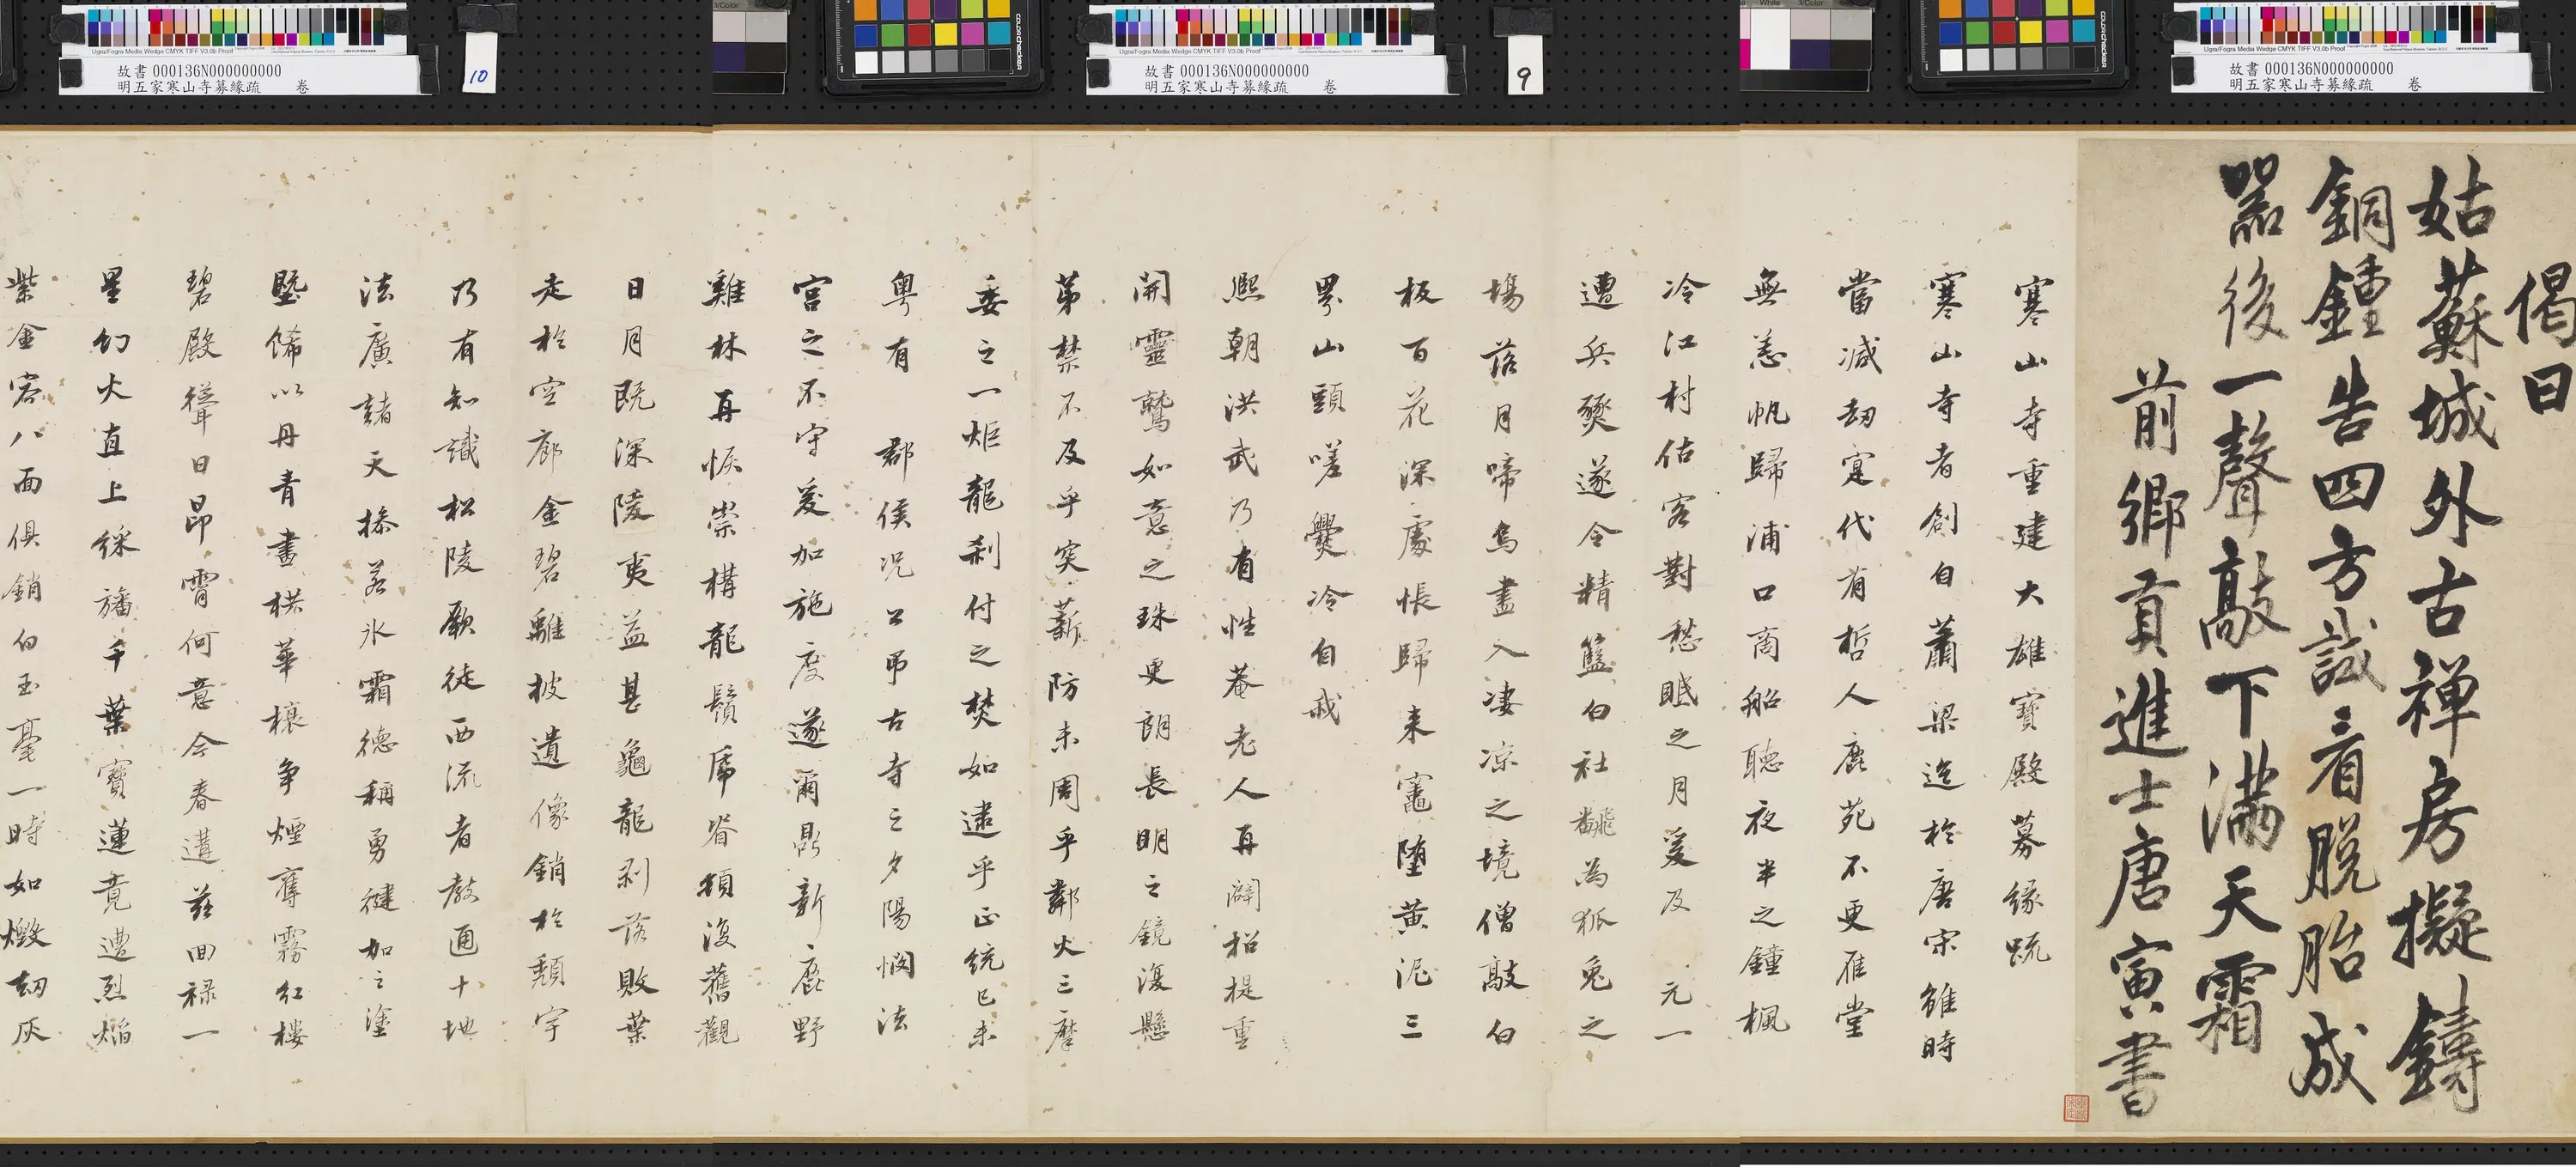 偈曰
姑蘇城外古禅房擬鑄
銅鍾告四方試看脫胎成
器後一聲敲下滿天霜
前鄉貢進士唐寅書
寒山寺重建大雄寳殿募緣疏
寒山寺者創自蕭梁迄於唐宋雖時
當減劫寔代有哲人鹿苑不更雁堂
無恙帆歸浦口商船聽夜半之鐘楓
冷江村估客對愁眠之月爰及 元一
遭兵燹遂令精籃白社飜為狐兔之
場落月啼烏盡入凄凉之境僧敲白
板百花深處悵歸来竈墮黄泥三
界山頭嗟爨冷自戒
熈朝洪武乃有性菴老人再闢招提重
開靈鷲如意之珠更朗長明之鏡復懸
苐禁不及乎突薪防未周乎鄰火三摩
委之一炬龍刹付之焚如逮乎正統已未
粤有 郡侯况公吊古寺之夕陽憫法
宫之不守爰加施度遂爾鼎新鹿野
雞林再恢崇構龍鬚虎脊頓復舊觀
日月既深陵夷益甚龜龍剥落敗葉
走於空廊金碧離披遺像銷於頽宇
乃有知識松陵厥徒西流者教通十地
法廣諸天操若氷霜德稱勇健加之塗
塈餙以丹青畫栱華榱争煙奪霧紅樓
碧殿聳日昂霄何意今春遘兹回禄一
星幻火直上綵旛千葉寳蓮竟遭烈焰
紫金容八面俱銷白玉毫一時如燬劫灰
故書 000136N000000000
明五家寒山寺募緣疏 卷
10
故書 000136N000000000
明五家寒山寺募緣疏 卷
9
故書 000136N000000000
明五家寒山寺募緣疏 卷
Ugra/Fogra Media Wedge CMYK TIFF V3.0b Proof
Ugra/Fogra Media Wedge CMYK TIFF V3.0b Proof
Ugra/Fogra Media Wedge CMYK TIFF V3.0b Proof
3/Color
White 3/Color
colorchecker
colorchecker